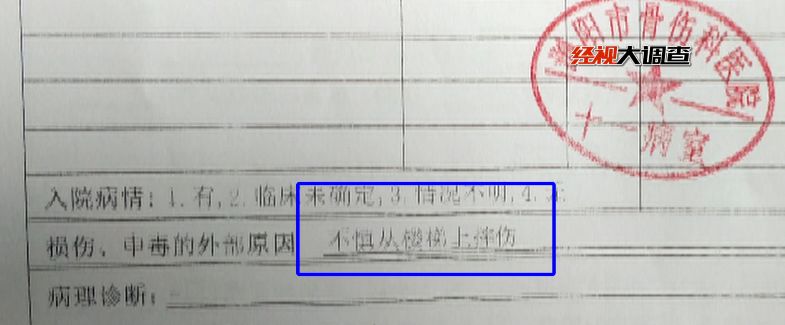 阳市骨伤科医院
经视大调查
十一病室
入院病情：1.有,2.临床未确定,3.情况不明,4.无
损伤、中毒的外部原因 不慎从楼梯上摔伤
病理诊断：